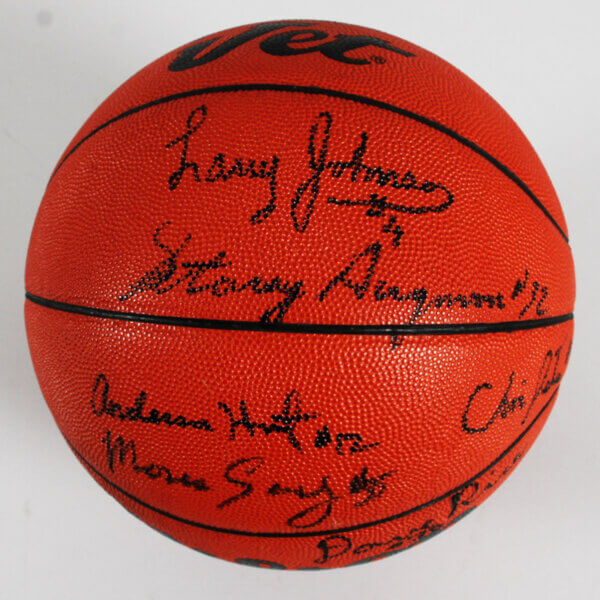 Jet®
Larry Johnson
#4
Stacey Augmon #32
Anderson Hunt #12
Moses Scurry #35
Chris